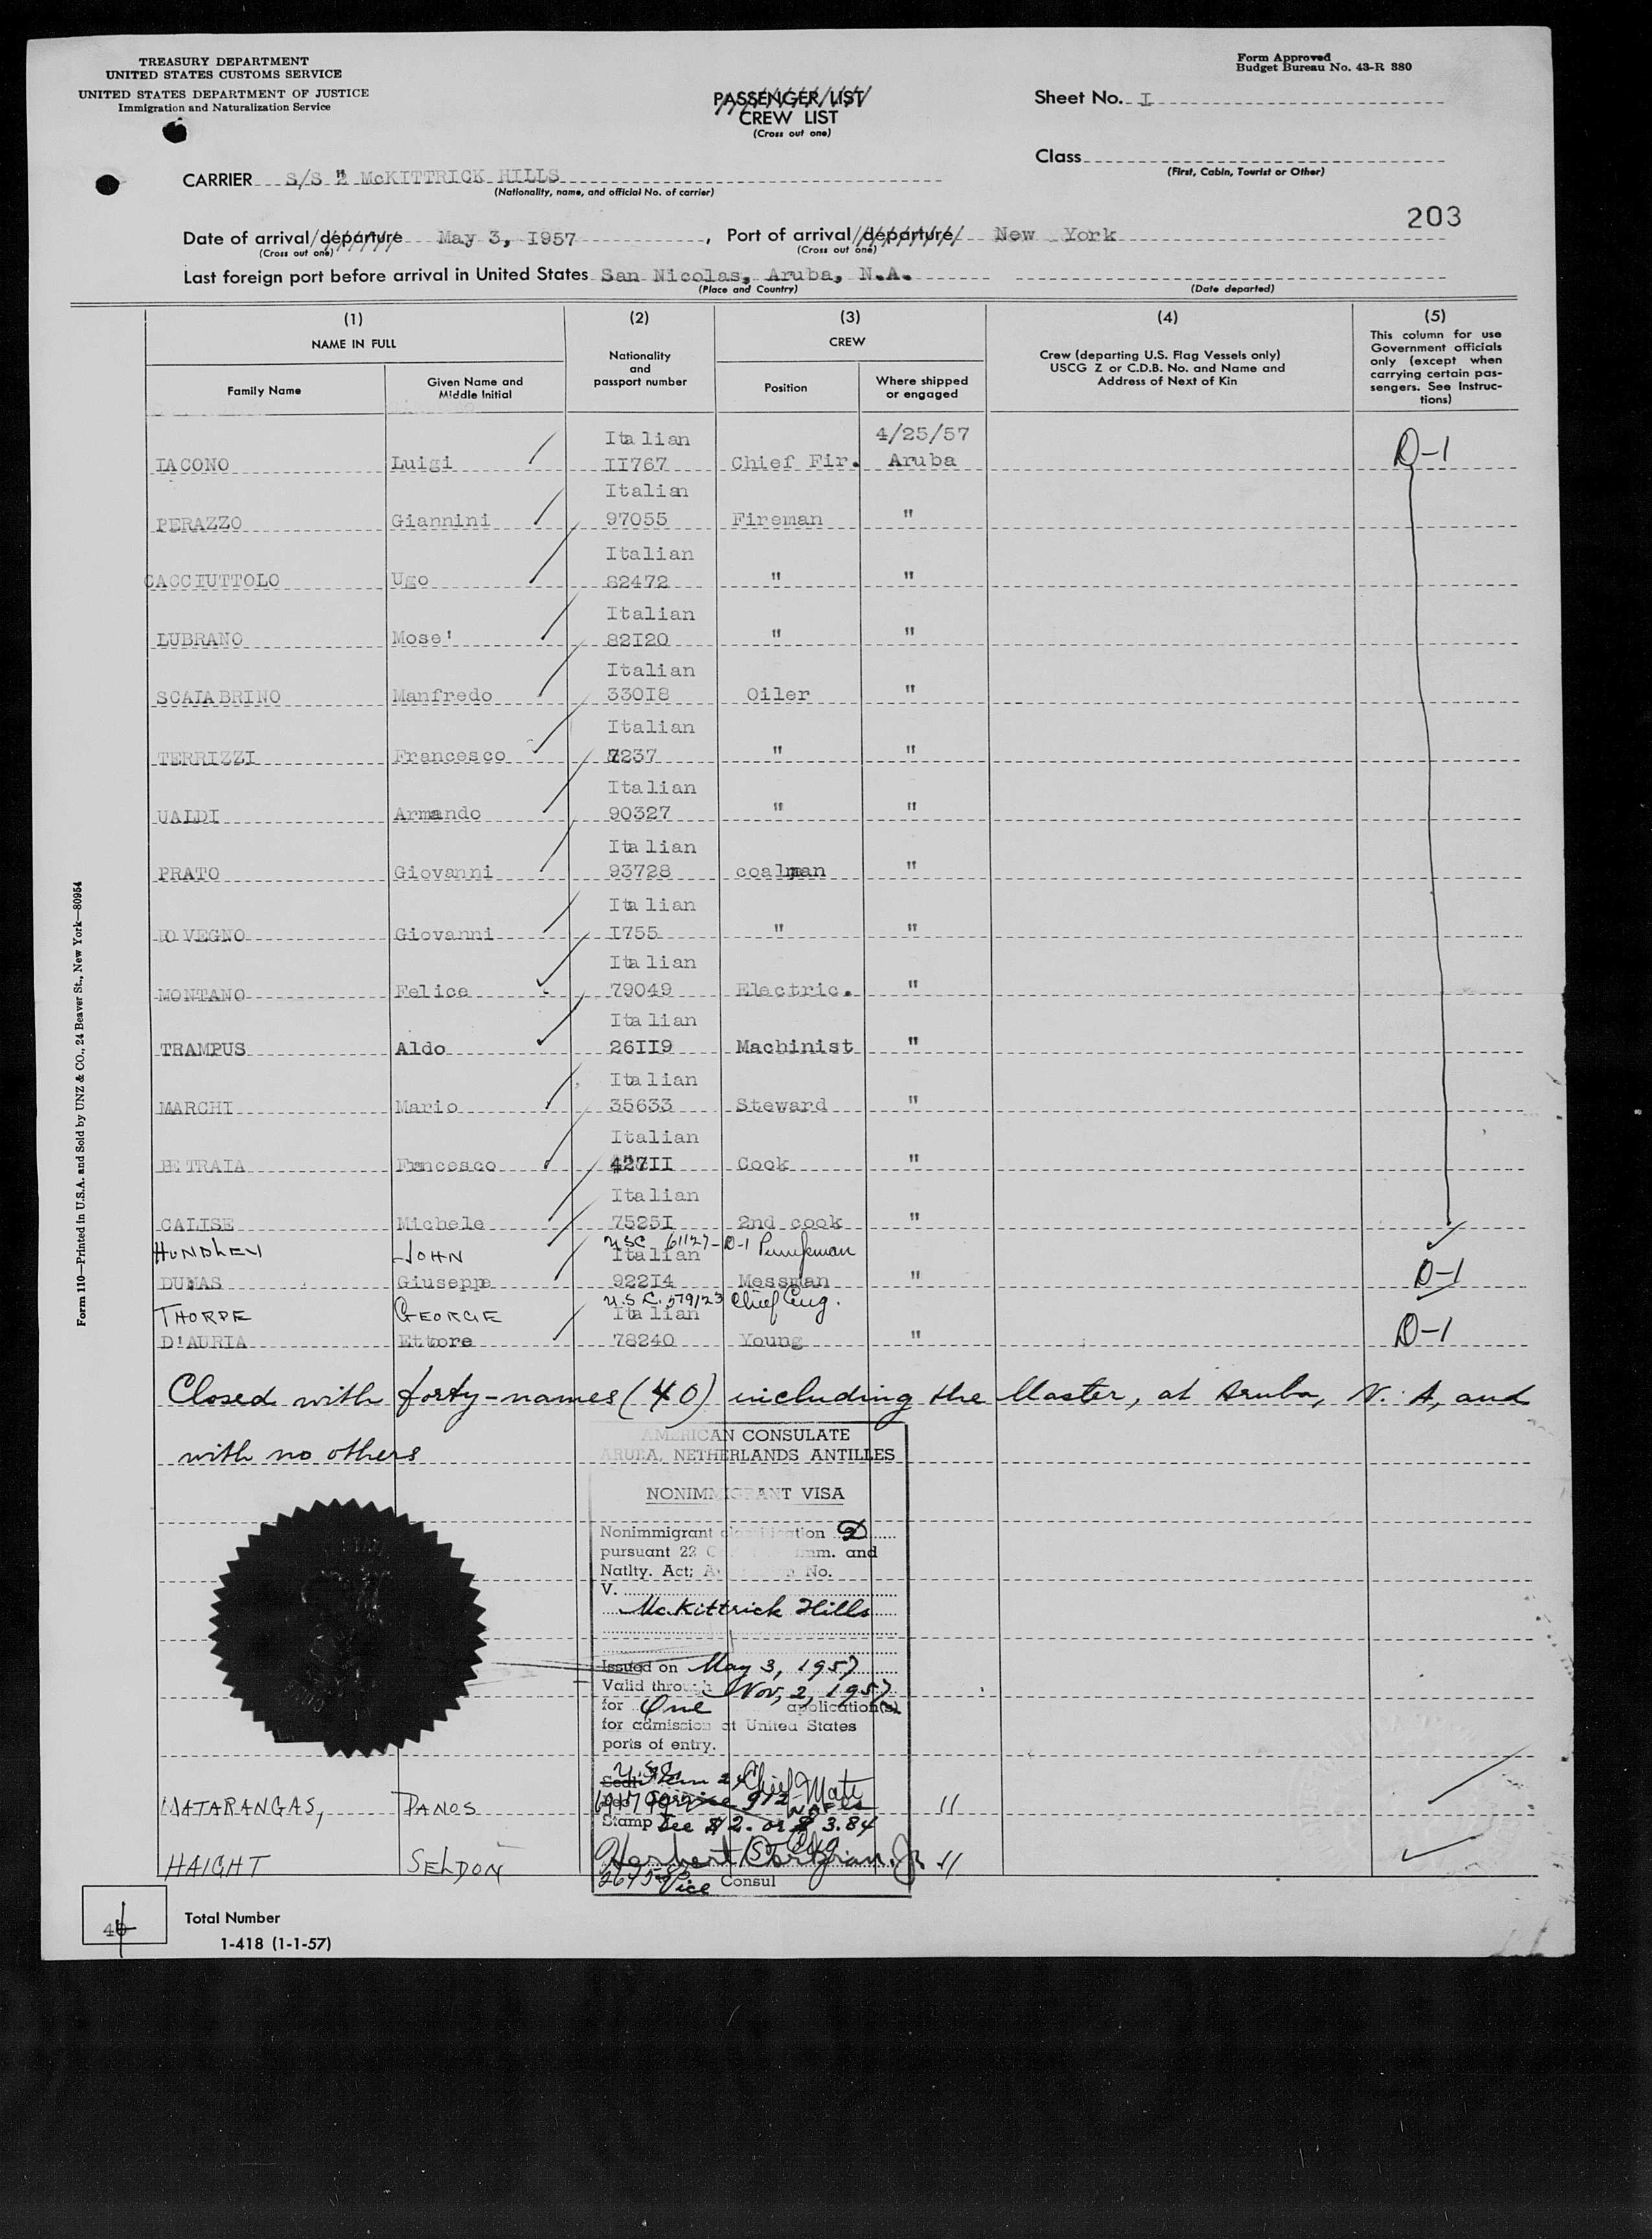 TREASURY DEPARTMENT
UNITED STATES CUSTOMS SERVICE
UNITED STATES DEPARTMENT OF JUSTICE
Immigration and Naturalization Service
Form Approved
Budget Bureau No. 43-R 380
PASSENGER LIST
CREW LIST
(Cross out one)
Sheet No. I
Class
(First, Cabin, Tourist or Other)
CARRIER S/S " McKITTRICK HILLS
(Nationality, name, and official No. of carrier)
203
Date of arrival/departure May 3, I957, Port of arrival/departure New York
(Cross out one) (Cross out one)
Last foreign port before arrival in United States San Nicolas, Aruba, N.A.
(Place and Country) (Date departed)
(1) (2) (3) (4) (5)
NAME IN FULL
Family Name
Given Name and Middle Initial
Nationality and passport number
CREW
Position
Where shipped or engaged
Crew (departing U.S. Flag Vessels only)
USCG Z or C.D.B. No. and Name and
Address of Next of Kin
This column for use
Government officials
only (except when
carrying certain pas-
sengers. See Instruc-
tions)
Italian 4/25/57
IACONO Luigi II767 Chief Fir. Aruba D-1
Italian
PERAZZO Giannini 97055 Fireman "
Italian
CACCIUTTOLO Ugo 82472 " "
Italian
LUBRANO Mose' 82I20 " "
Italian
SCALABRINO Manfredo 330I8 Oiler "
Italian
TERRIZZI Francesco 7237 " "
Italian
UALDI Armando 90327 " "
Italian
PRATO Giovanni 93728 coalman "
Italian
VEGNO Giovanni I755 " "
Italian
MONTANO Felice 79049 Electric. "
Italian
TRAMPUS Aldo 26II9 Machinist "
Italian
MARCHI Mario 35633 Steward "
Italian
PETRAIA Francesco 427II Cook "
Italian
CALISE Michele 7525I 2nd cook "
HUNDLEY JOHN USC 61127-D-1 Pumpman
Italian
DUMAS Giuseppe 922I4 Messman " D-1
THORPE GEORGE U.S.C. 579123 Chief Eng.
Italian
D'AURIA Ettore 78240 Young " D-1
Closed with forty-names (40) including the Master, at Aruba, N. A, and
with no others
AMERICAN CONSULATE
ARUBA, NETHERLANDS ANTILLES
NONIMMIGRANT VISA
Nonimmigrant classification D
pursuant 22 Imm. and
Natlty. Act; No.
V.
McKittrick Hills
Issued on May 3, 1957
Valid through Nov, 2, 1957
for One application(s)
for admission at United States
ports of entry.
Chief Mate
MATARANGAS, PANOS "
Stamp Fee $2. or 3.84
HAIGHT SELDON "
Vice Consul
Total Number
1-418 (1-1-57)
Form 110—Printed in U.S.A. and Sold by UNZ & CO., 24 Beaver St., New York—80954